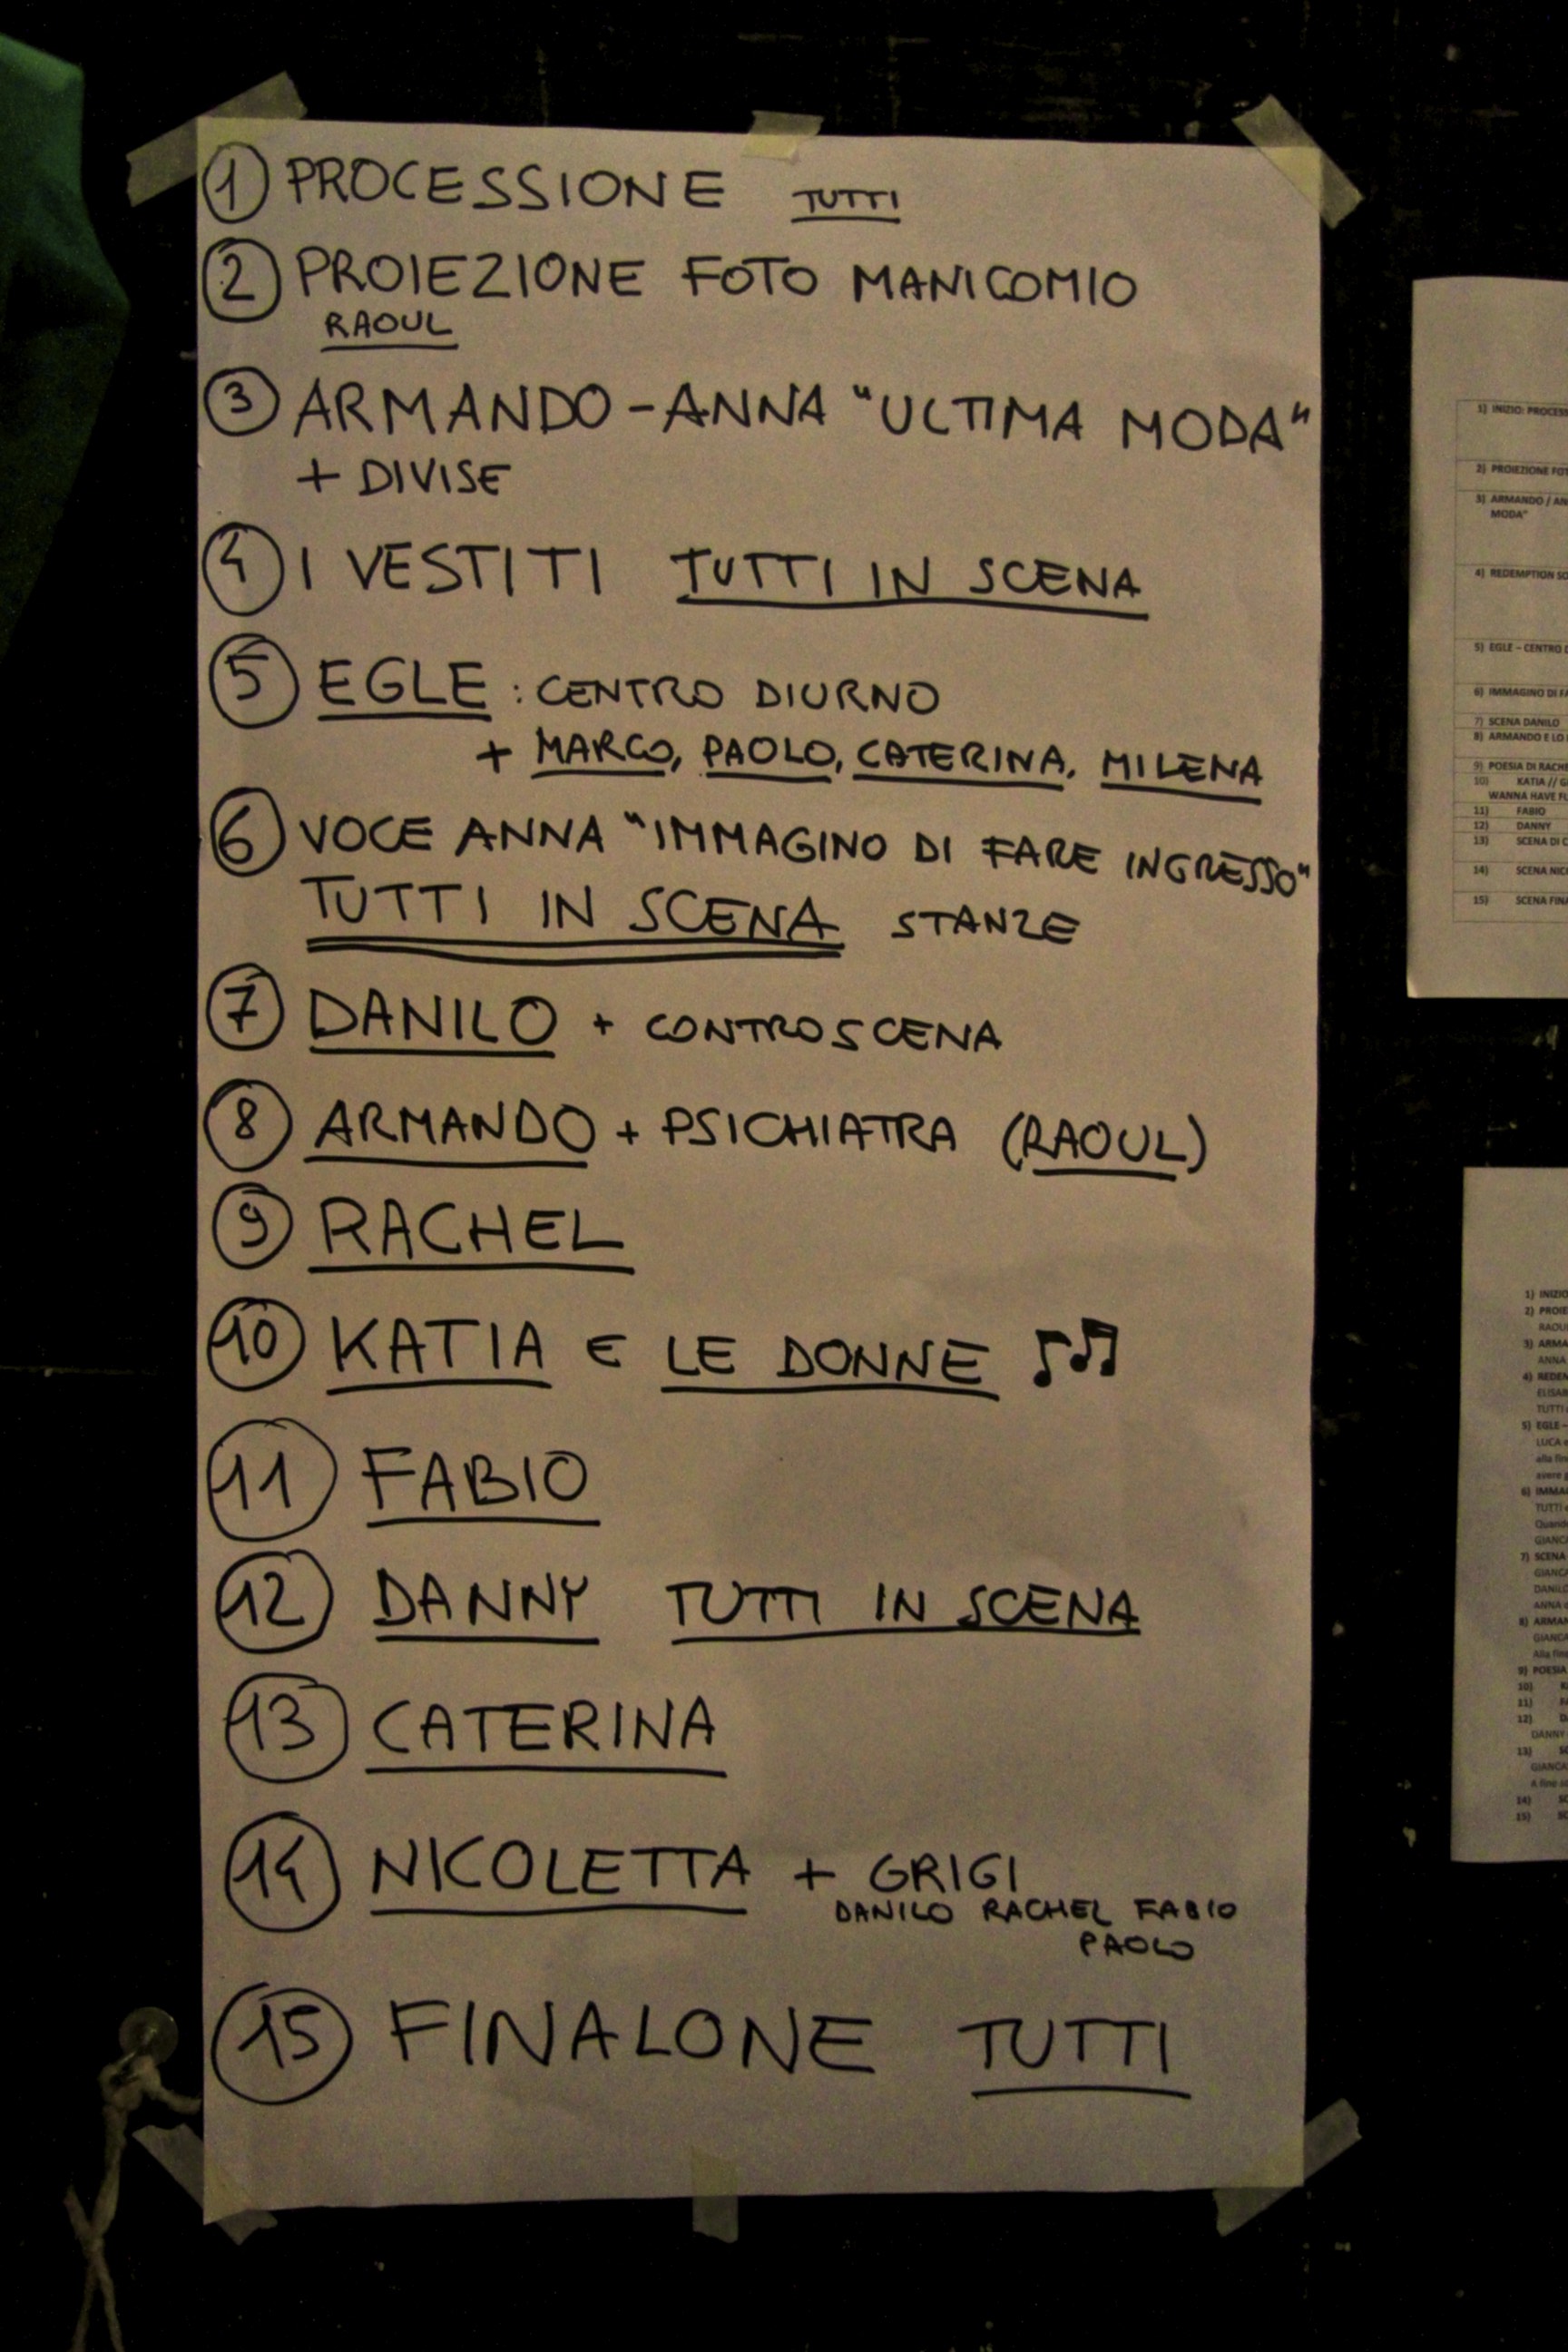 1 PROCESSIONE TUTTI
2 PROIEZIONE FOTO MANICOMIO
RAOUL
3 ARMANDO - ANNA "ULTIMA MODA"
+ DIVISE
4 I VESTITI TUTTI IN SCENA
5 EGLE : CENTRO DIURNO
+ MARCO, PAOLO, CATERINA, MILENA
6 VOCE ANNA "IMMAGINO DI FARE INGRESSO"
TUTTI IN SCENA STANZE
7 DANILO + CONTROSCENA
8 ARMANDO + PSICHIATRA (RAOUL)
9 RACHEL
10 KATIA E LE DONNE ♪♫
11 FABIO
12 DANNY TUTTI IN SCENA
13 CATERINA
14 NICOLETTA + GRIGI
DANILO RACHEL FABIO
PAOLO
15 FINALONE TUTTI
1) INIZIO: PROCESS
2) PROIEZIONE FOT
3) ARMANDO / AN
MODA"
4) REDEMPTION SO
5) EGLE – CENTRO D
6) IMMAGINO DI FA
7) SCENA DANILO
8) ARMANDO E LO
9) POESIA DI RACHE
10) KATIA // G
WANNA HAVE FU
11) FABIO
12) DANNY
13) SCENA DI C
14) SCENA NIC
15) SCENA FINA
1) INIZIO
2) PROIE
RAOUL
3) ARMA
ANNA
4) REDEM
ELISAB
TUTTI
5) EGLE –
LUCA e
alla fin
avere
6) IMMA
TUTTI
Quando
GIANCA
7) SCENA
GIANCA
DANILO
ANNA
8) ARMAN
GIANCA
Alla fine
9) POESIA
10) K
11) F
12) D
DANNY
13) SC
GIANCA
A fine sc
14) SC
15) SC